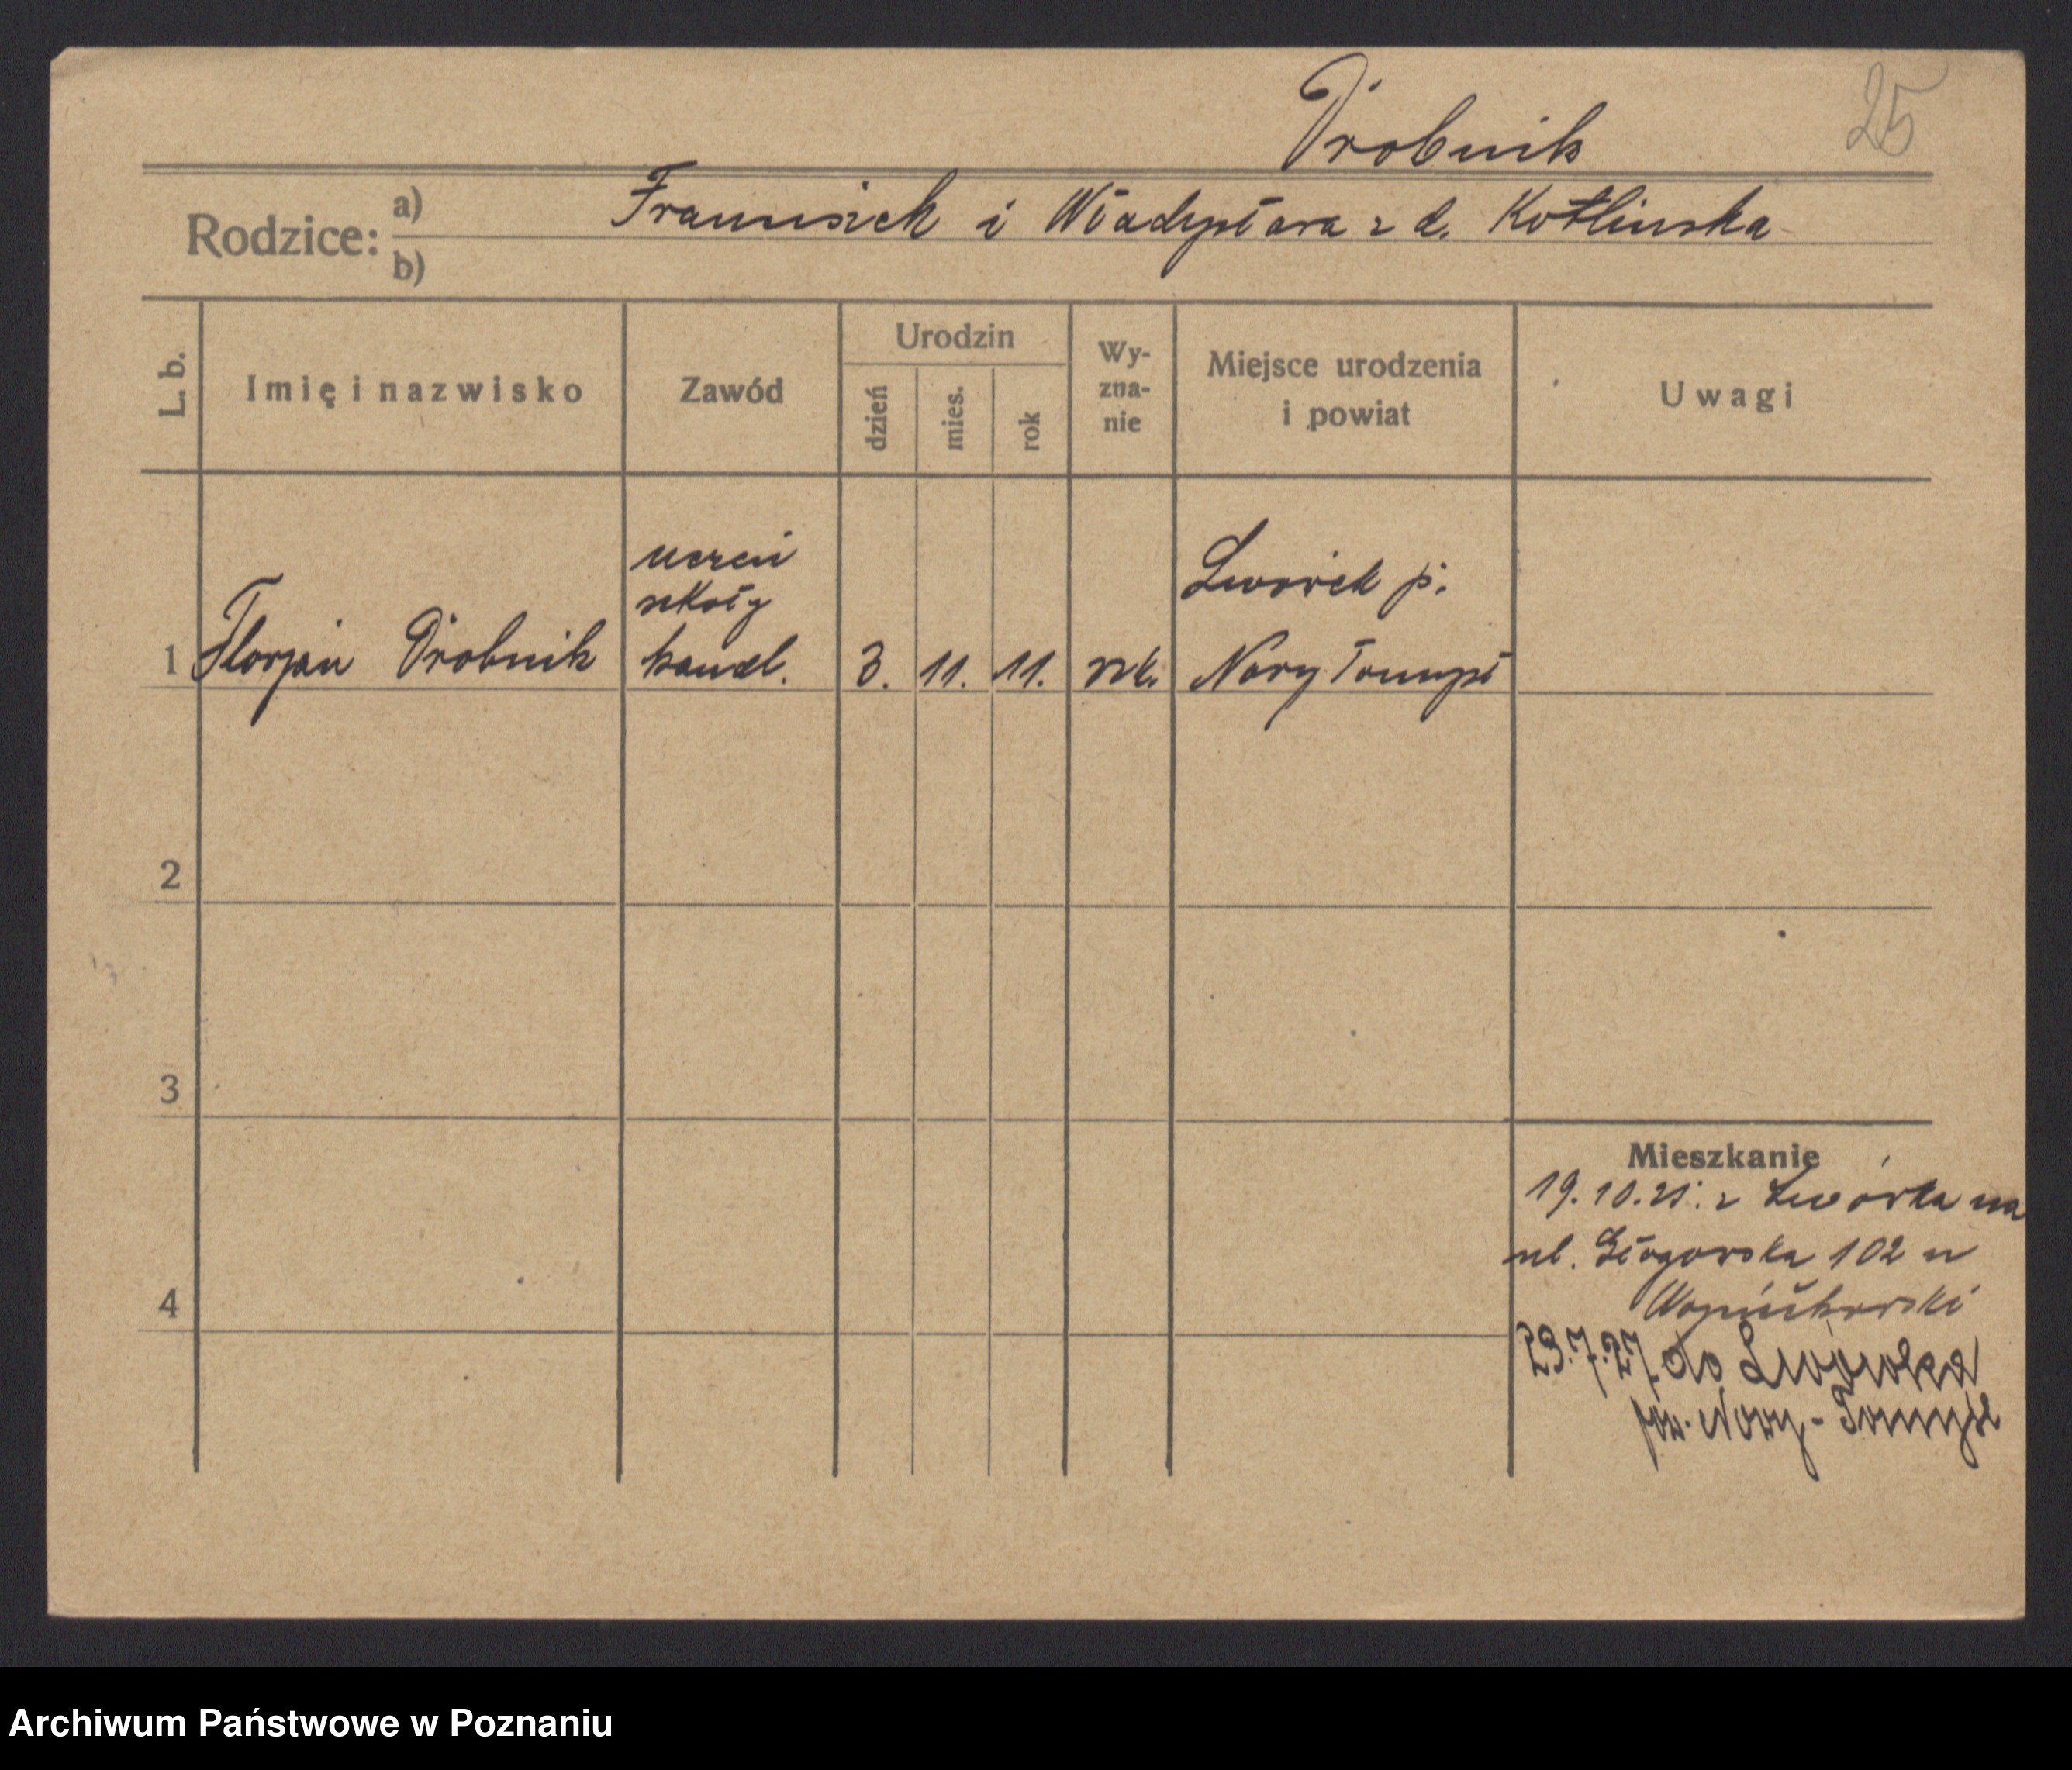 25
Drobnik
Rodzice: a) b)
Franciszek i Władysława z d. Kotlinska
L. b.
Imię i nazwisko
Zawód
Urodzin
dzień
mies.
rok
Wy-
zna-
nie
Miejsce urodzenia
i powiat
Uwagi
1 Florjan Drobnik
uczeń
szkoły
handl.
3. 11. 11. rzk.
Lwówek p.
Nowy Tomyśl
2
3
4
Mieszkanie
19.10.25. z Lwówka na
ul. Głogowska 102 u
23.7.27. do Lwówka
pow. Nowy-Tomyśl
Archiwum Państwowe w Poznaniu